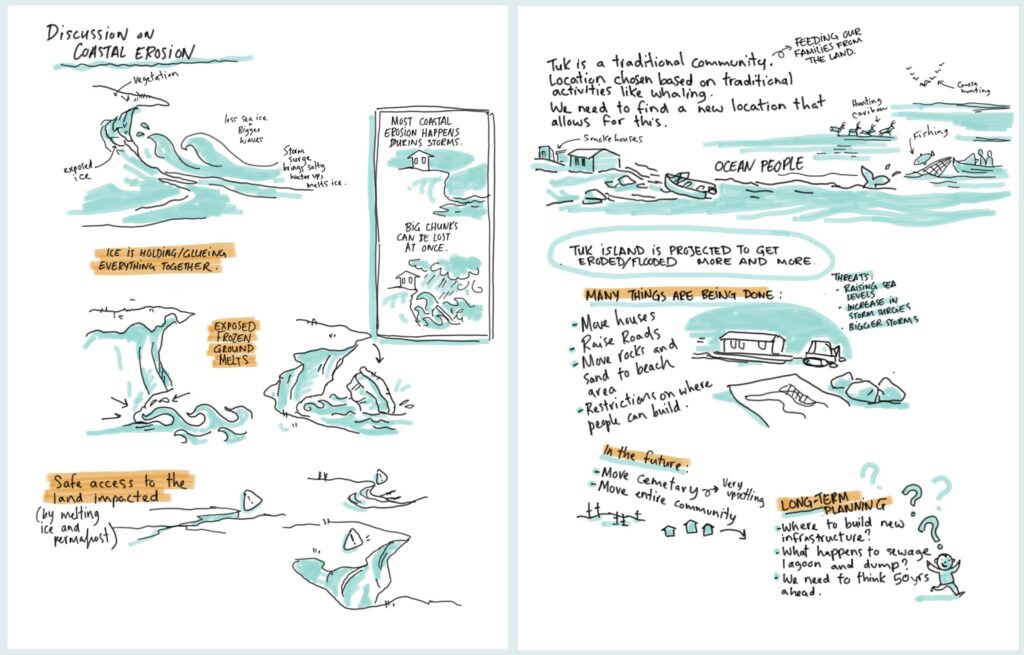 Discussion on
Coastal Erosion
Vegetation
less sea ice
=
Bigger
waves
exposed
ice
Storm
surge
brings salty
water up,
melts ice.
Ice is holding/glueing
everything together.
Most coastal
erosion happens
during storms.
Big chunks
can be lost
at once.
Exposed
frozen
ground
melts
Safe access to the
land impacted
(by melting
ice and
permafrost)
!
!
!
Tuk is a traditional community.
Feeding our
families from
the land.
Location chosen based on traditional
activities like whaling.
We need to find a new location that
allows for this.
Goose
hunting
Hunting
caribou
Fishing
Smokehouses
Ocean People
Tuk Island is projected to get
eroded/flooded more and more.
Many things are being done:
- Move houses
- Raise Roads
- Move rocks and
sand to beach
area
- Restrictions on where
people can build.
Threats:
- Raising sea
levels
- Increase in
storm surges
- Bigger storms
In the future:
- Move cemetary
Very
upsetting
- Move entire
community
Long-term
planning
- Where to build new
infrastructure?
- What happens to sewage
lagoon and dump?
- We need to think 50yrs
ahead.
?
?
?
?